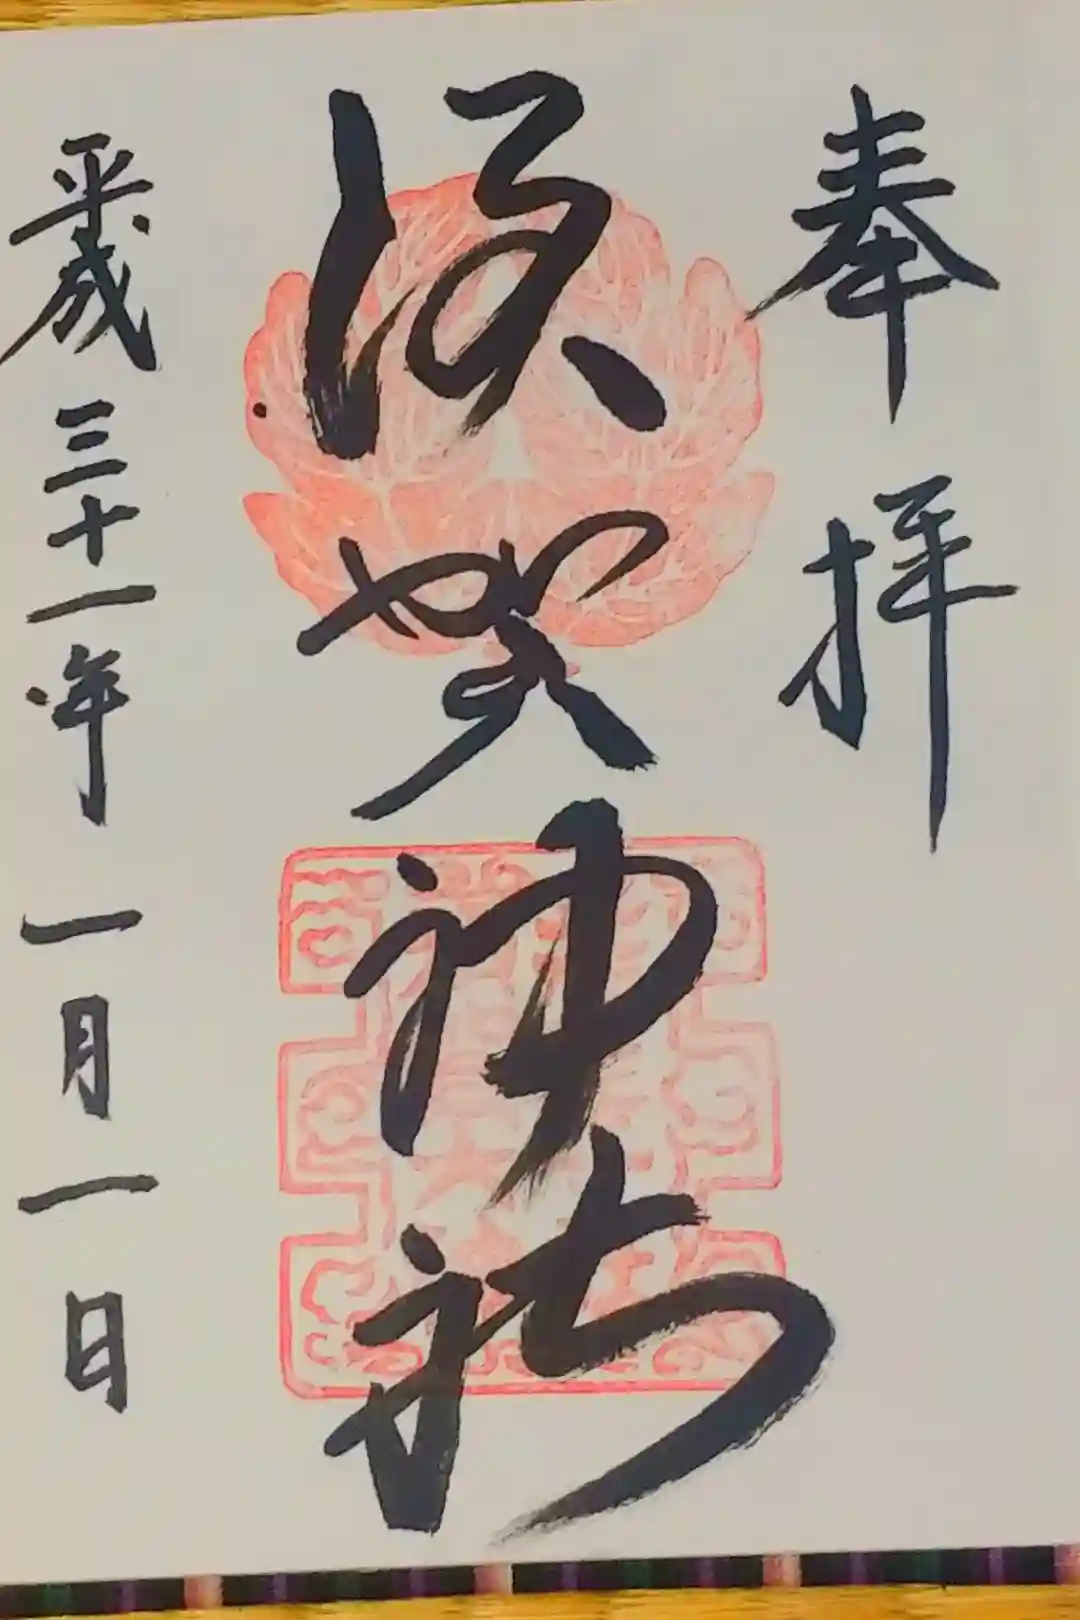 奉拝
須賀神社
平成三十一年一月一日